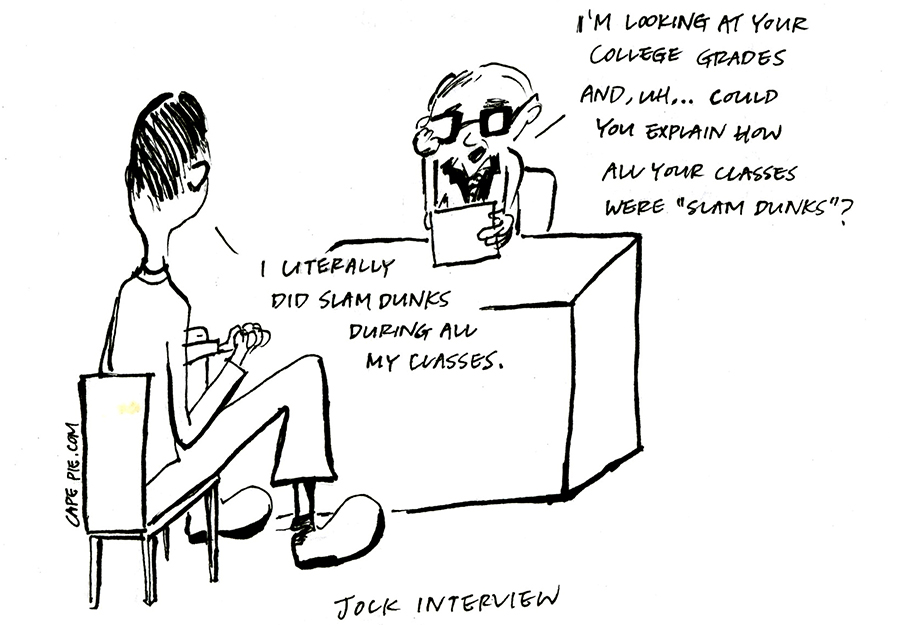 I'M LOOKING AT YOUR
COLLEGE GRADES
AND, UH... COULD
YOU EXPLAIN HOW
ALL YOUR CLASSES
WERE "SLAM DUNKS"?
I LITERALLY
DID SLAM DUNKS
DURING ALL
MY CLASSES.
CAPE PIE.COM
JOCK INTERVIEW